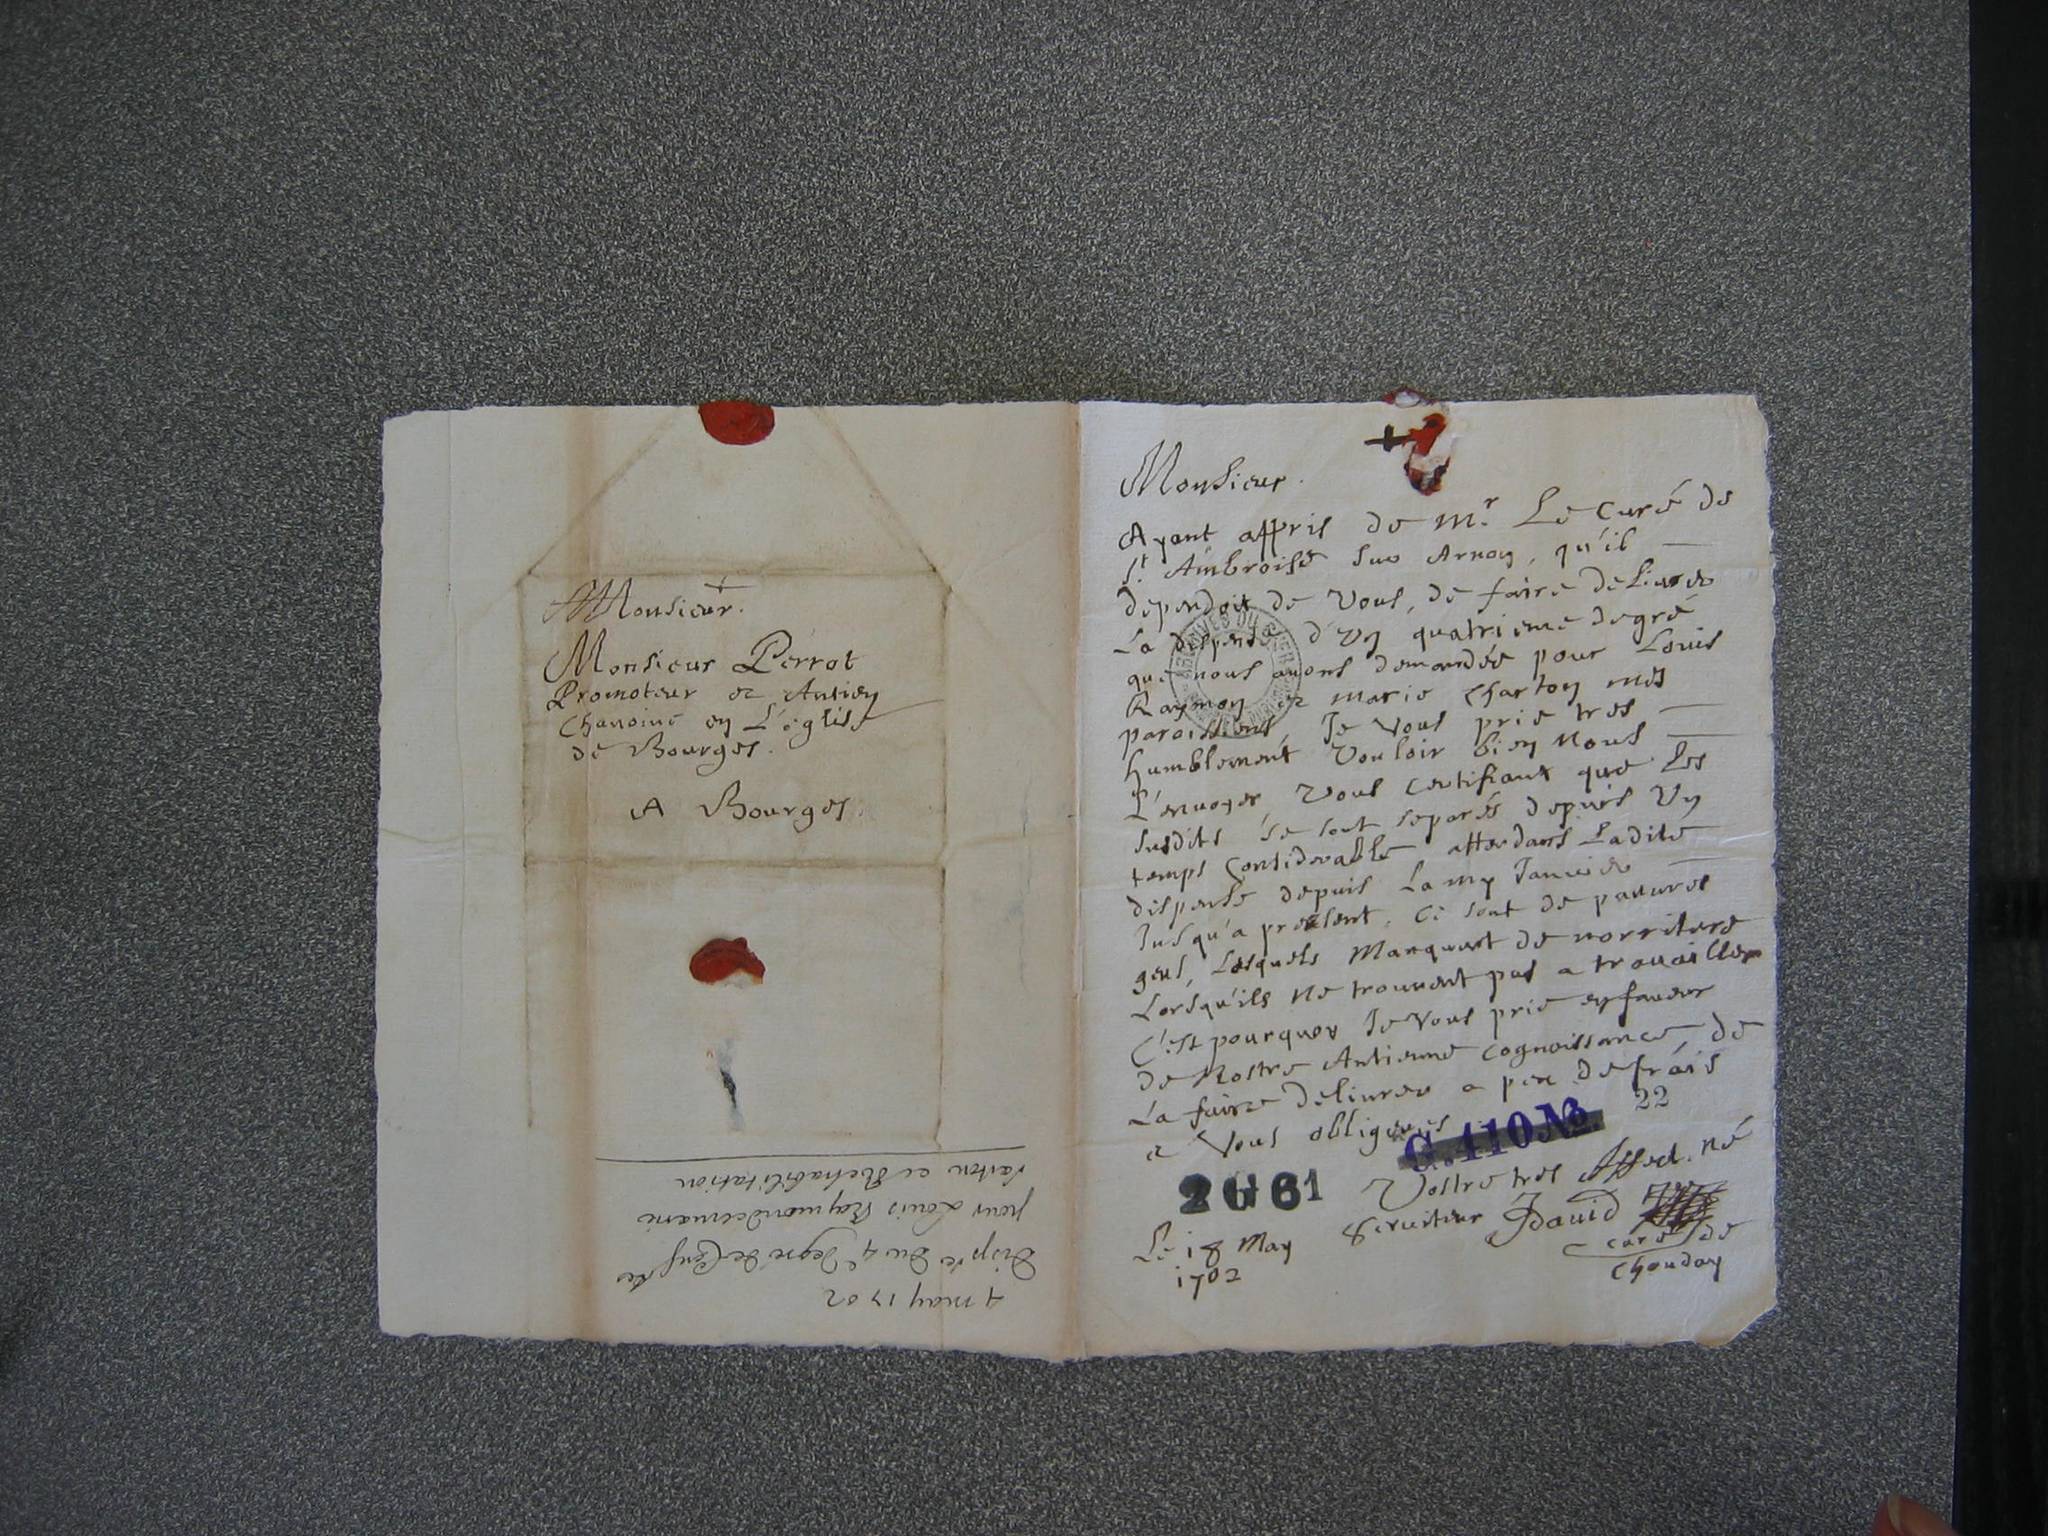 Monsieur.
Monsieur Perrot
Promoteur et Antien
Chanoine en L'église
de Bourges.
A Bourges.
4 may 1702
dispse du 4e degre de
pour Louis Raymond et marie
et Rehabilitation
Monsieur.
Ayant appris de Mr. Le Curé de
St. Ambroise sur Arnon, qu'il
dependoit de Vous, de faire deliurer
La dispense d'Un quatrieme degré
que nous auons demandée pour Louis
Raymon et marie Charton mes
paroissiens, Je Vous prie tres
humblement Vouloir bien Nous
L'enuoyer, Vous Certifiant que Les
susdits se sont separés depuis Un
temps Considerable attendans Ladite
dispense depuis La my Januier
Jusqu'a present. Ce sont de pauures
gens, Lesquels Manquent de norriture
Lorsqu'ils Ne trouuent pas a trauailler
C'est pourquoy Je Vous prie en faueur
de Nostre Antienne Cognoissance, de
La faire deliurer a peu de frais
et Vous obligerés
22
G. 110 No.
2 G 61
Vostre tres affect.né
seruiteur David
curé de
Chouday
Le 18 May
1702
ARCHIVES DU CHER